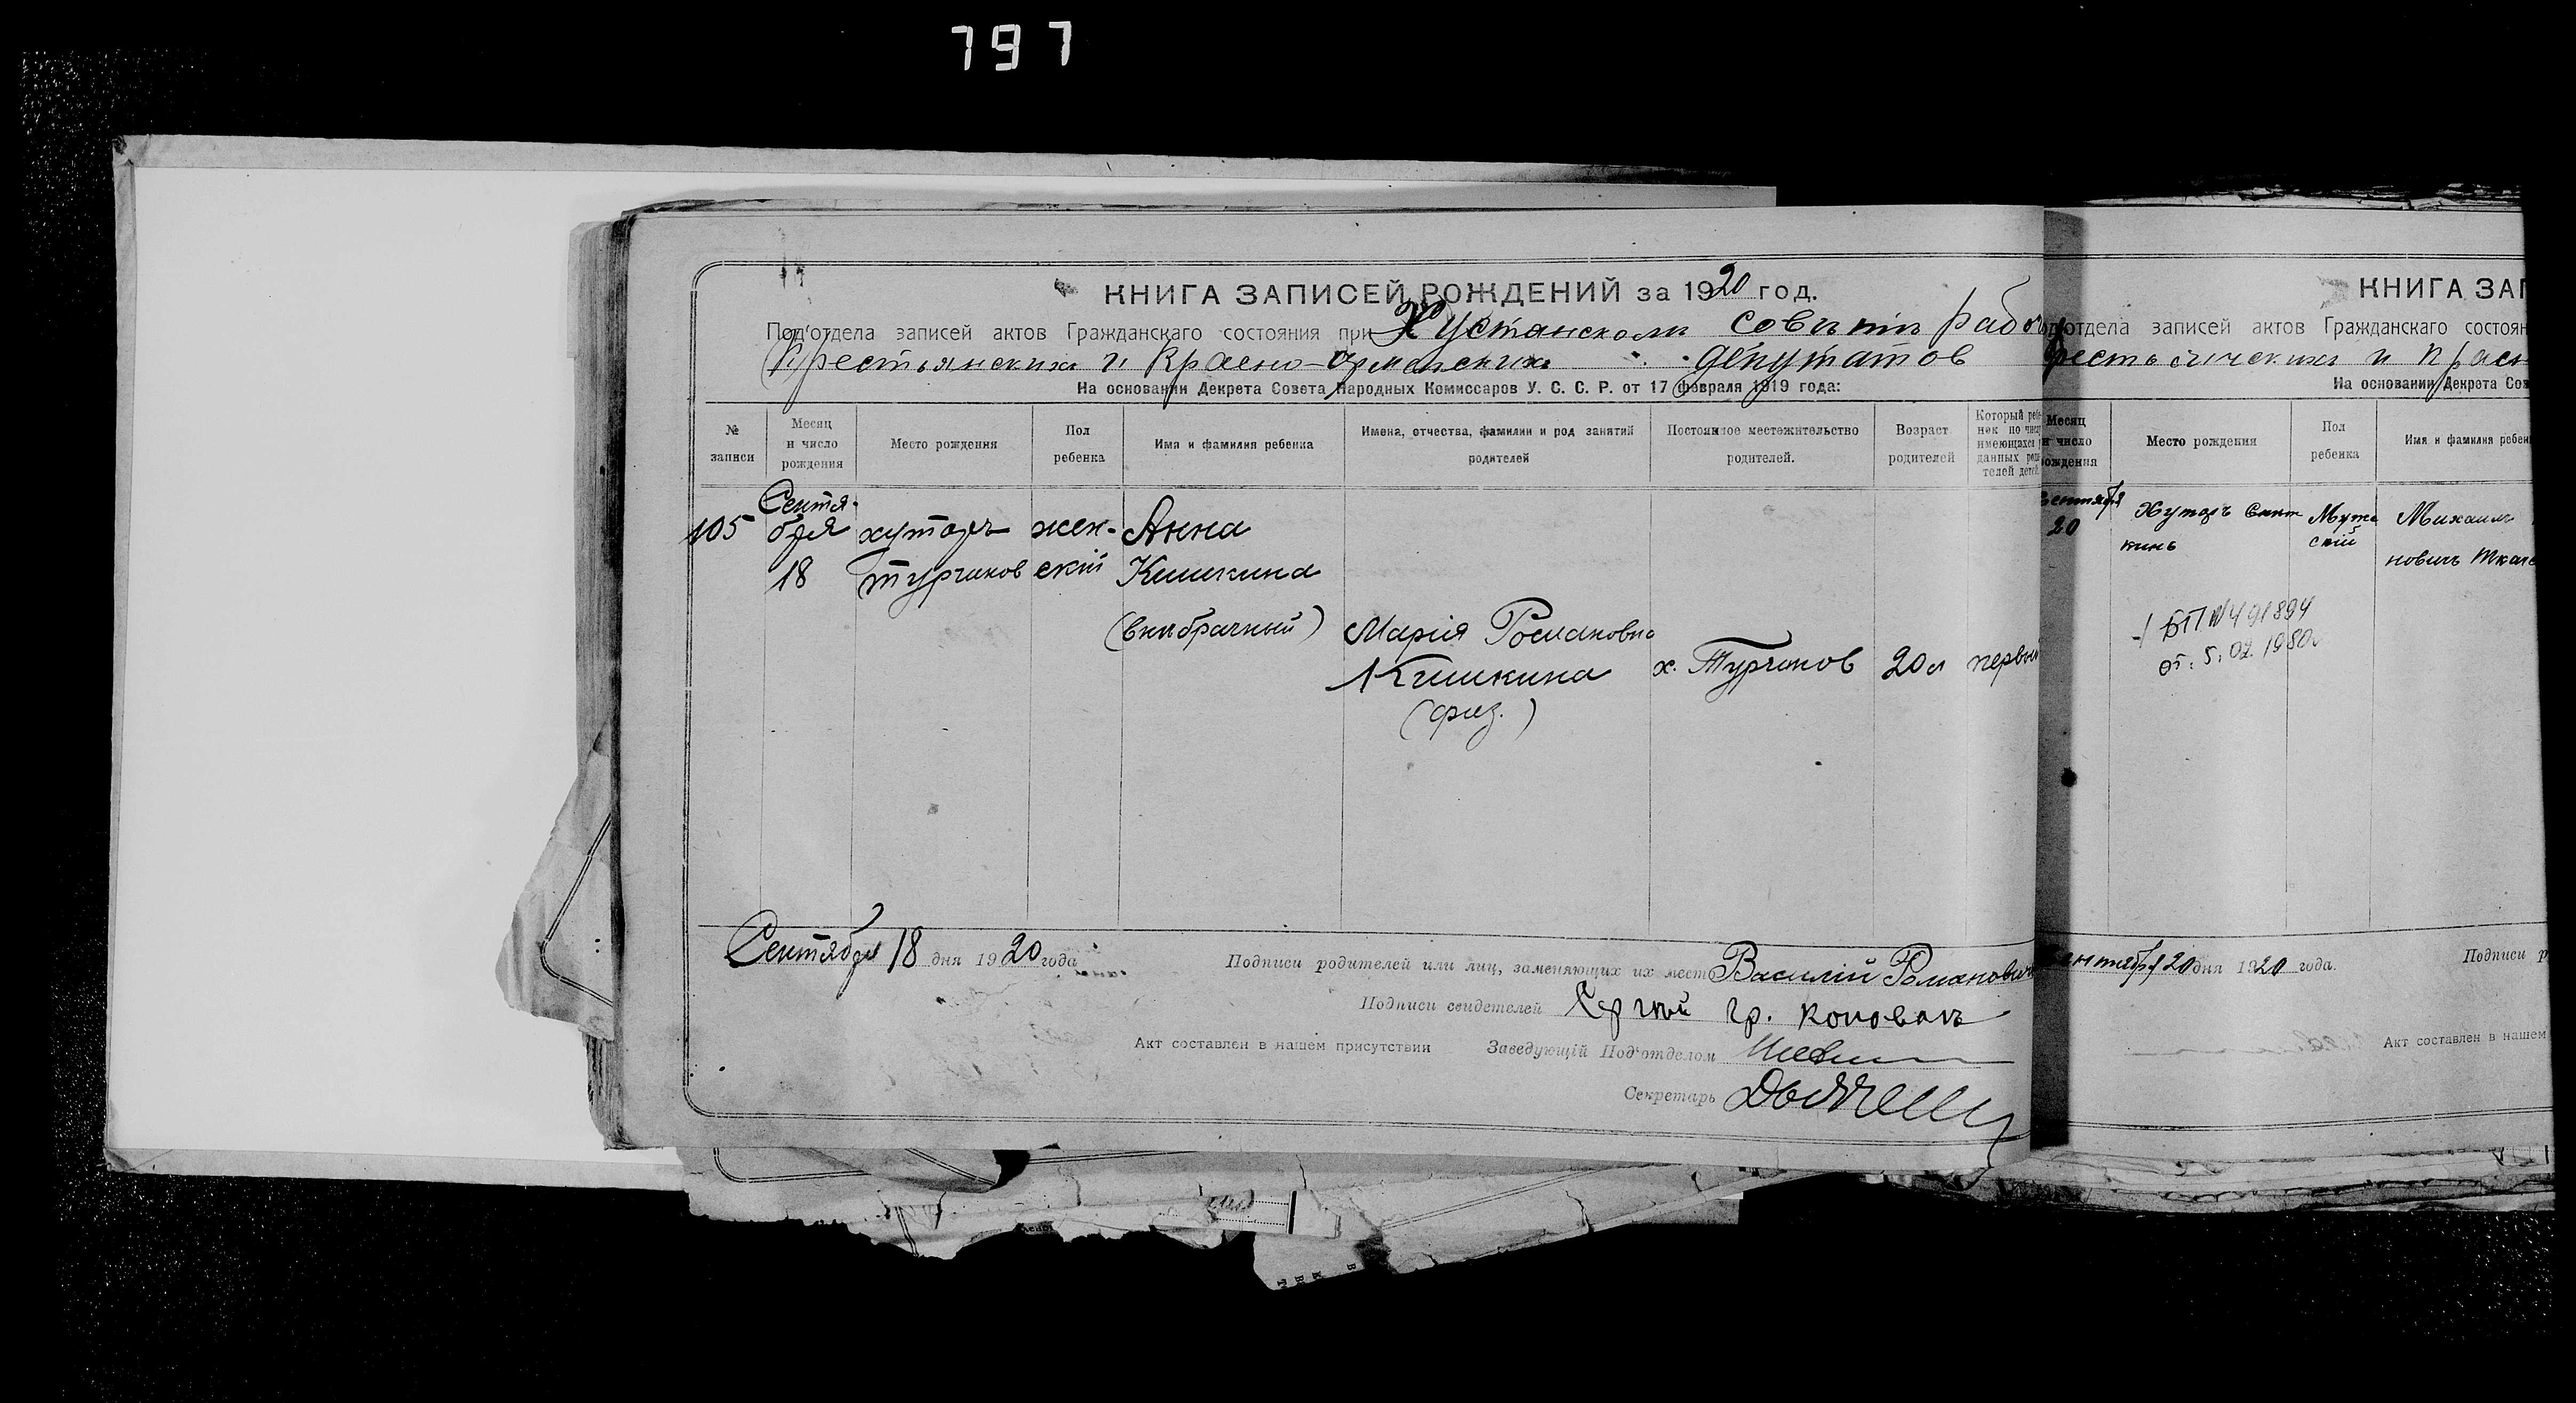 797
КНИГА ЗАПИСЕЙ РОЖДЕНИЙ за 1920 год.
Под'отдела записей актов Гражданскаго состояния при Хустянском совѣтѣ рабоч
Крестьянских и Красно-армейских депутатов
На основании Декрета Совета Народных Комиссаров У. С. С. Р. от 17 февраля 1919 года:
№ записи
Месяц и число рождения
Место рождения
Пол ребенка
Имя и фамилия ребенка
Имена, отчества, фамилии и род занятий родителей
Постоянное местожительство родителей.
Возраст родителей
Который ребе-
нок по числу
имеющихся у
данных роди-
телей детей.
Сентя-
105 бря хуторъ жен- Анна
18 турчинов скій Кишкина
(внѣбрачный) Марія Романовна
Кишкина х. Турчинов 20 л первый
(физ.)
Сентября 18 дня 1920 года
Подписи родителей или лиц, заменяющих их мест Василій Романович
Подписи свидетелей Сергѣй Гр. Коновалъ
Акт составлен в нашем присутствии Заведующій Под'отделом
Секретарь
КНИГА ЗАП
отдела записей актов Гражданскаго состоян
рестьянских и Красн
На основании Декрета Сов
Месяц
и число
рождения
Место рождения
Пол ребенка
Имя и фамилия ребен
Сентября
20 Хуторъ Мужс Михаилъ
скій
новичъ Ткаче
БП №491894
от. 5. 02. 1980г
Сентября 20 дня 1920 года.
Подписи р
Акт составлен в нашем